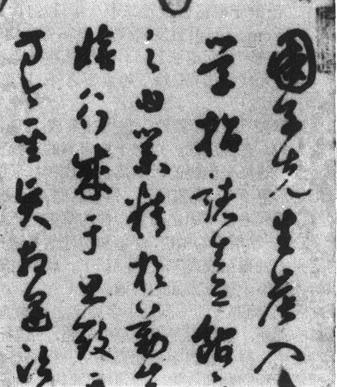 國子先生晨入
学招諸生立館
之曰業精於勤
嬉行成于思毀
方今聖賢相逢治